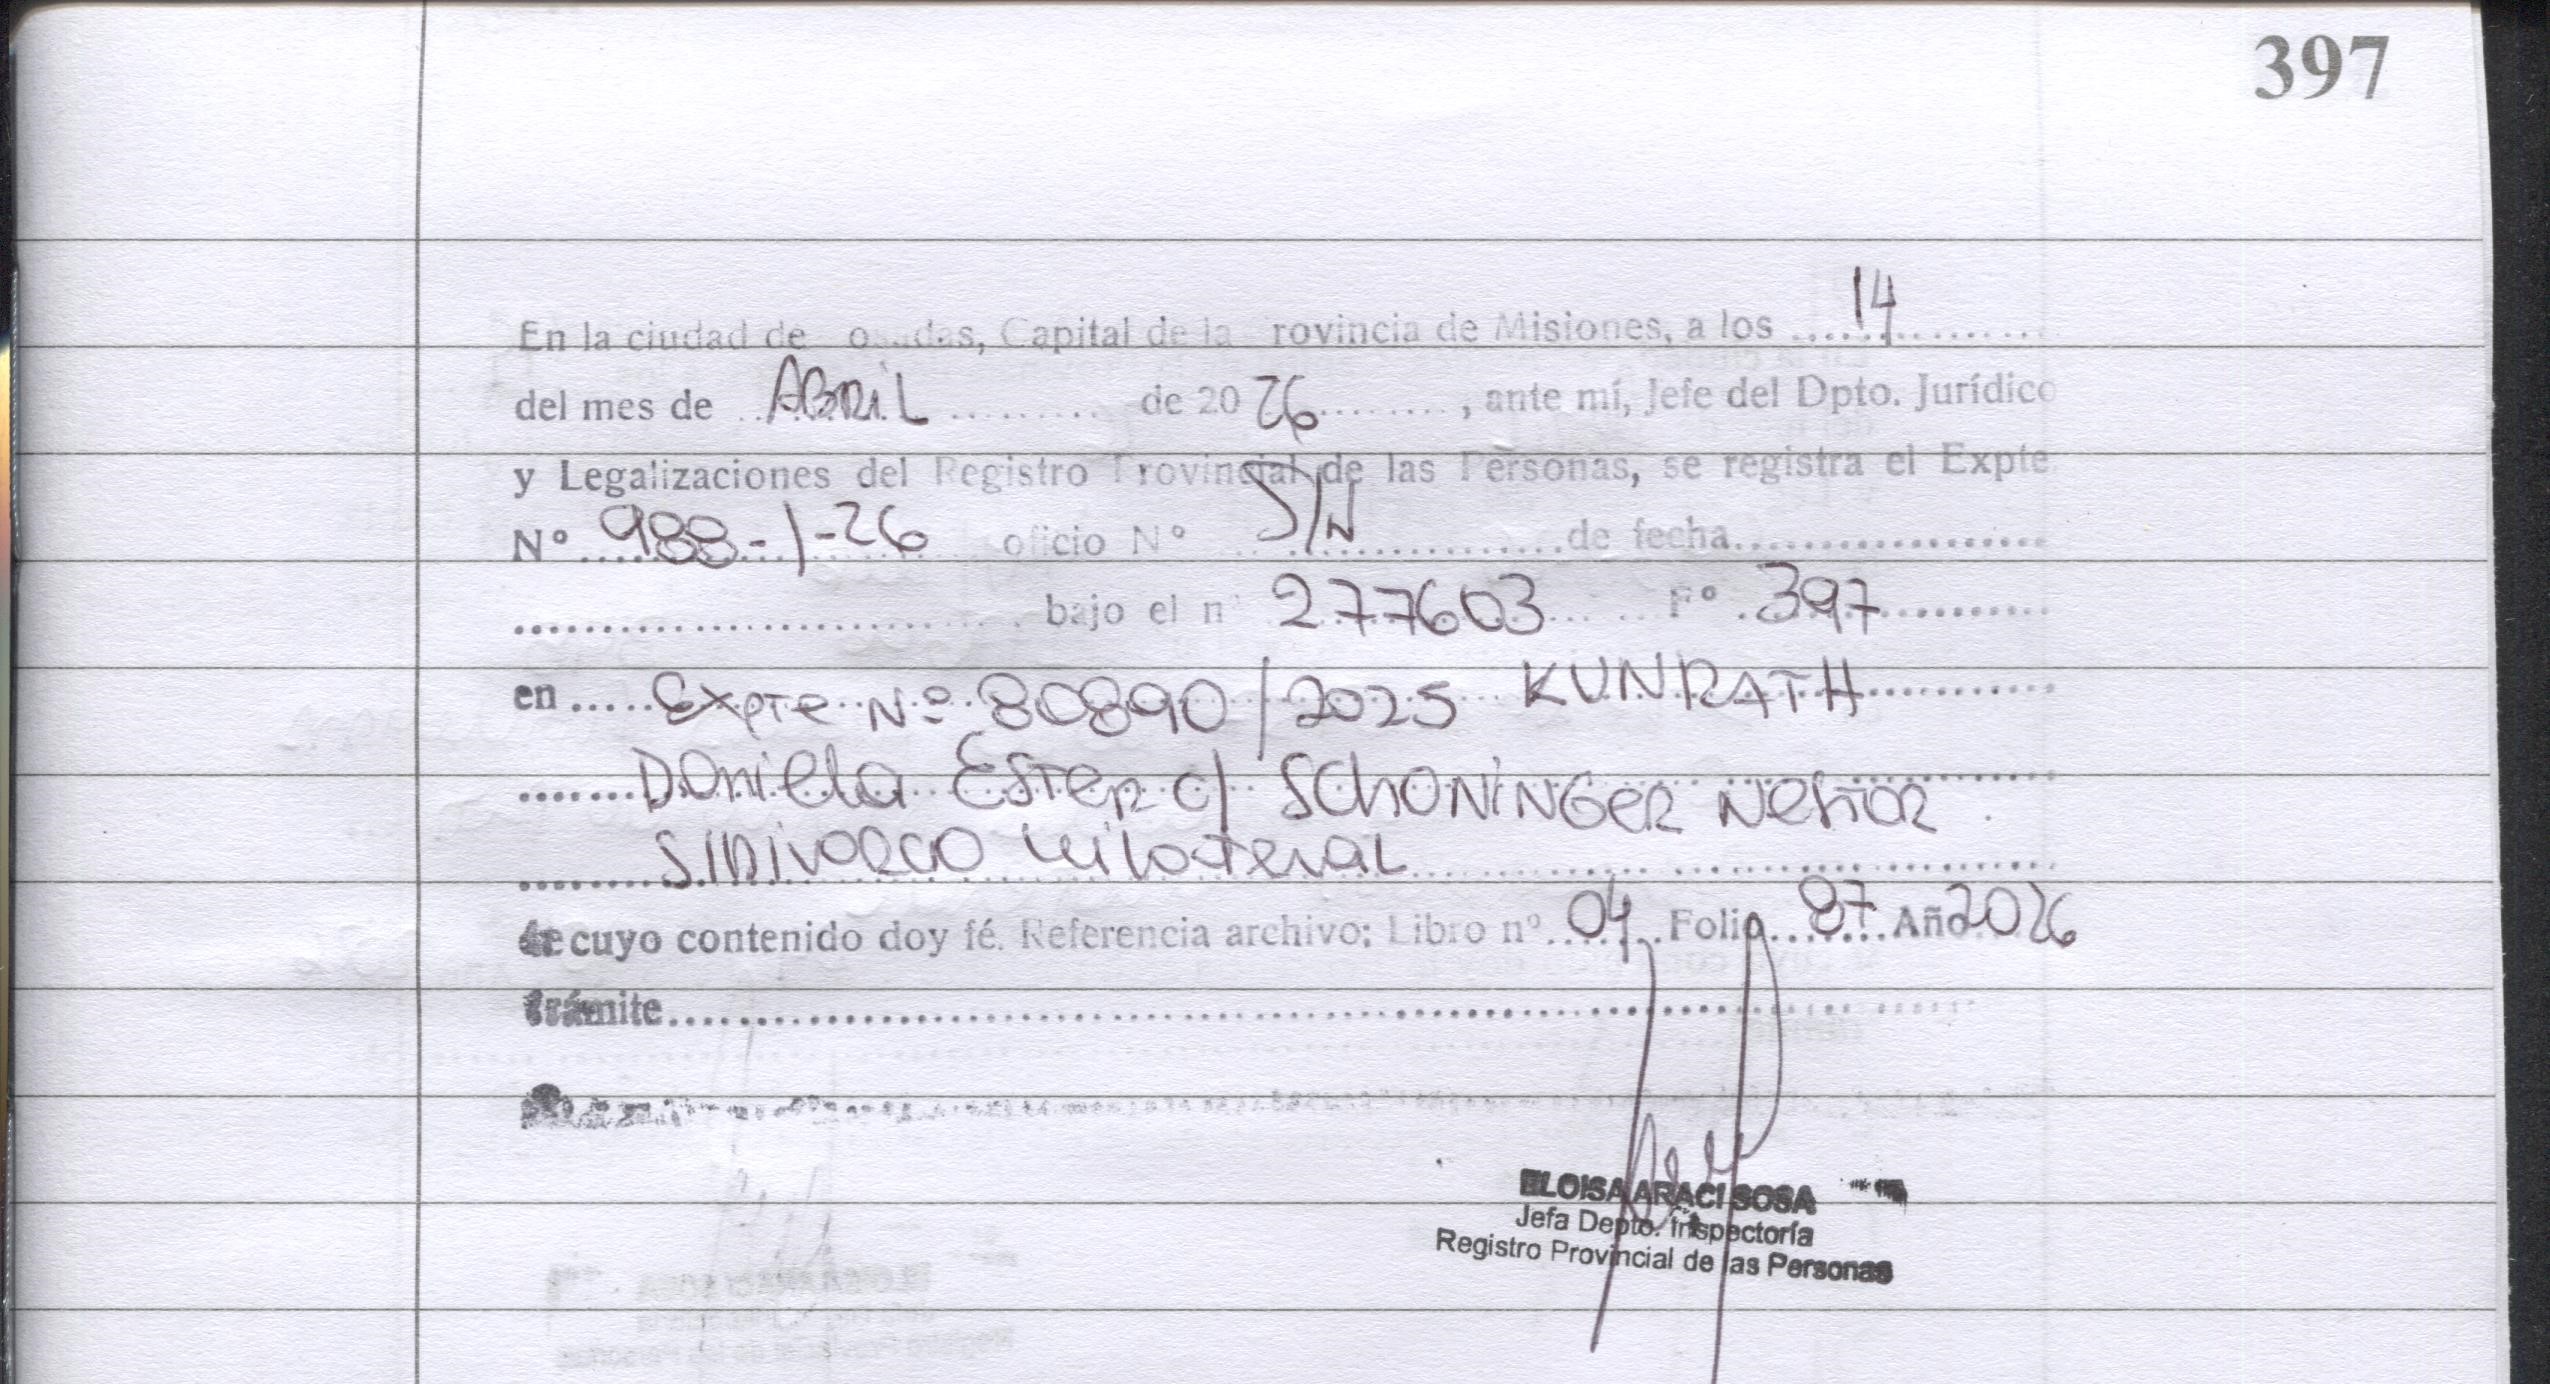 397
En la ciudad de o adas, Capital de la rovincia de Misiones, a los ....14....
del mes de ..ABRIL.......... de 20 26........, ante mí, Jefe del Dpto. Jurídico
y Legalizaciones del Registro Provincial de las Personas, se registra el Expte
Nº ..988-1-26 oficio Nº S/N ..............de fecha...................
.............................. bajo el nº 277603 Fº .397...........
en ..... Expte Nº 80890/2025 KUNRATH
.......Daniela Ester c/ SCHONINGER Nestor
........S/DIVORCIO Unilateral
de cuyo contenido doy fé. Referencia archivo: Libro nº..04..Folio..87.Año2026
trámite...................................................................
ELOISA ARACI SOSA
Jefa Depto. Inspectoría
Registro Provincial de las Personas